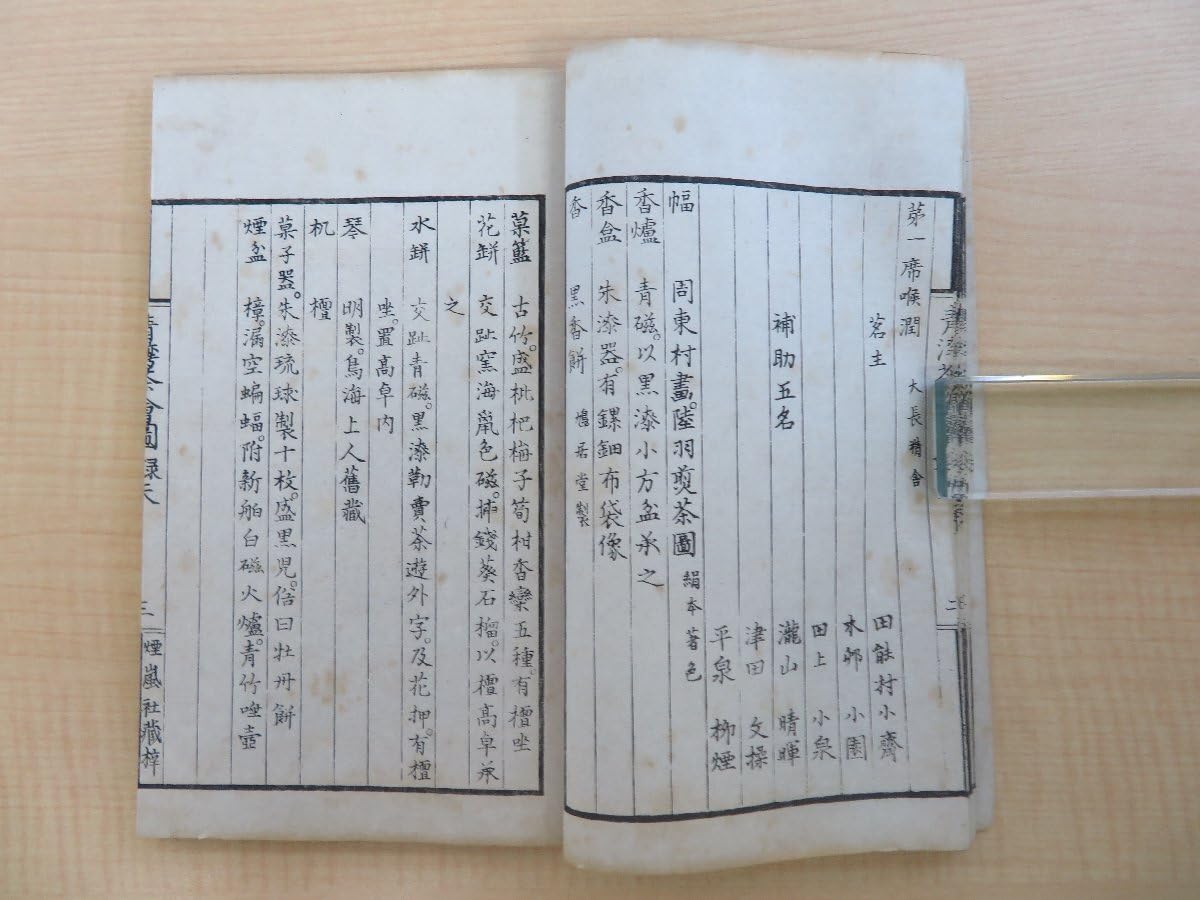 第一席喉潤
大長精舎
茗主
田能村小齋
水郷 小園
補助五名
田上 小泉
瀧山 晴暉
津田 文操
平泉 柳煙
幅 周東村畫。陸羽煎茶圖 絹本著色
香爐 青磁。以黒漆小方盆承之
香盒 朱漆器。有鏍鈿布袋像
香 黒香餅 鳩居堂製
菓籃 古竹。盛枇杷梅子筍柑香欒五種。有檀坐
花缾 交趾窯海鼠色磁。挿錢葵石榴。以檀高卓承
之
水缾 交趾青磁。黒漆勒賣茶遊外字。及花押。有檀
坐。置高卓内
琴 明製。鳥海上人舊藏
机 檀
菓子器。朱漆琉球製十枚。盛黒児。俗曰牡丹餅
煙盆 樟。漏空蝙蝠。附新舶白磁火爐。青竹唾壺
三
煙嵐社藏梓